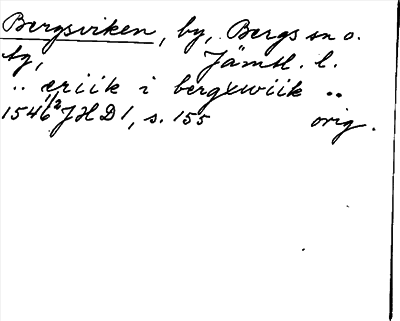 Bergsviken, by, Bergs sn o.
tg, Jämtl. l.
.. æriik i bergxwiik ..
1546 1/2 JHD 1, s. 155 orig.